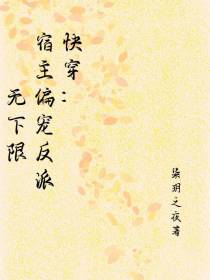 快穿：
宿主偏宠反派
无下限
柒玥之夜著